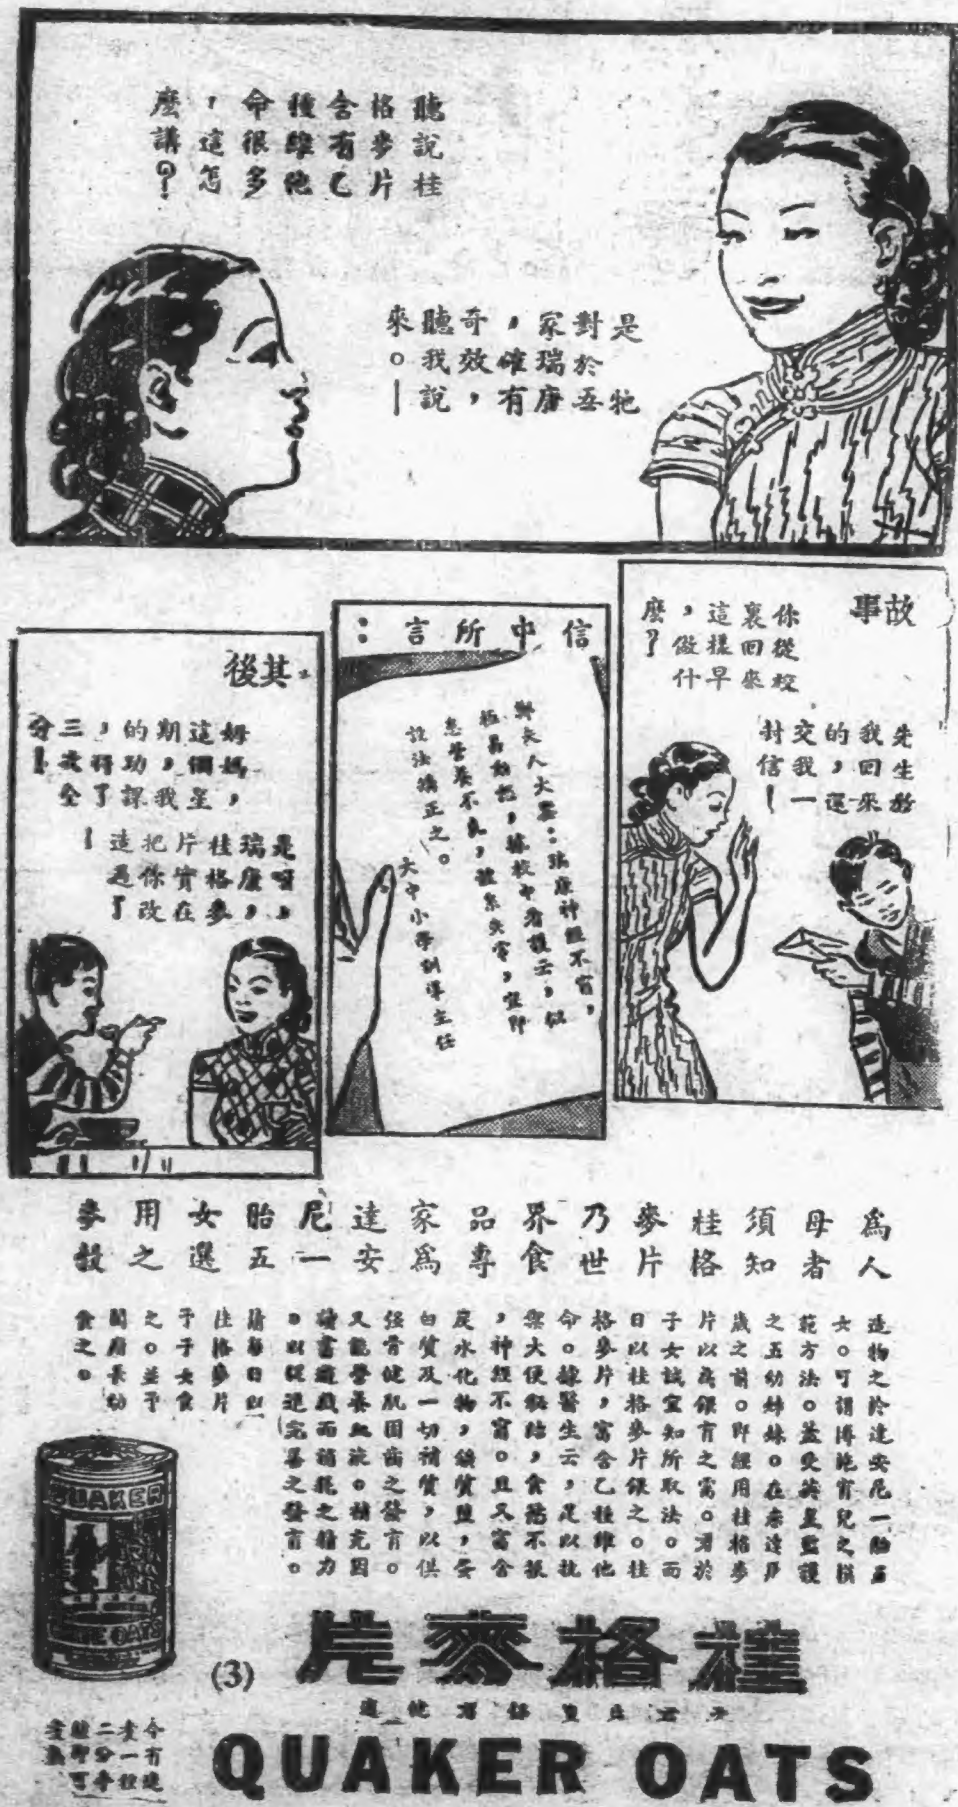 聽說桂
格麥片
含有乙
種維他
命很多
，這怎
麼講？
是牠
對於吾
家瑞康
，確有
奇效，
聽我說
來。—
故事
你從校
裏回來
這樣早
，做什
麼？
先生教
我回來
的，還
交我一
封信！
信中所言：
鄭夫人大鑒：瑞康神經不甯，
極易動怒，據校中看護云，似
患營養不良，體氣失常，宜即
設法矯正之。
大中小學訓導主任
其後
媽媽，
這個星
期，我
的功課
，得了
三次全
分！
是呀，
瑞康，
桂格麥
片實在
把你改
造過了
！
為人
母者
須知
桂格
麥片
乃世
界食
品專
家為
達安
尼一
胎五
女選
用之
麥穀
造物之於達安尼一胎五
女。可謂博施育兒之模
範方法。蓋受英皇監護
之五幼姊妹。在未達
歲之前。即經用桂格麥
片以為餵育之需。君於
子女誠宜知所取法。而
日以桂格麥片餵之。桂
格麥片，富含乙種維他
命。據醫生云，足以抗
禦大便秘結，食慾不振
，神經不甯。且又富含
炭水化物，鐵質鹽，蛋
白質及一切補質，以供
强骨健肌固齒之發育。
又能營養血液。補充因
讀書遊戲而消耗之精力
。以促進完善之發育。
請每日以
桂格麥片
予子女食
之。並予
閤府長幼
食之。
QUAKER
OATS
(3)
桂格麥片
QUAKER OATS
今有速
煮一種
二分半
鐘即可
煮熟